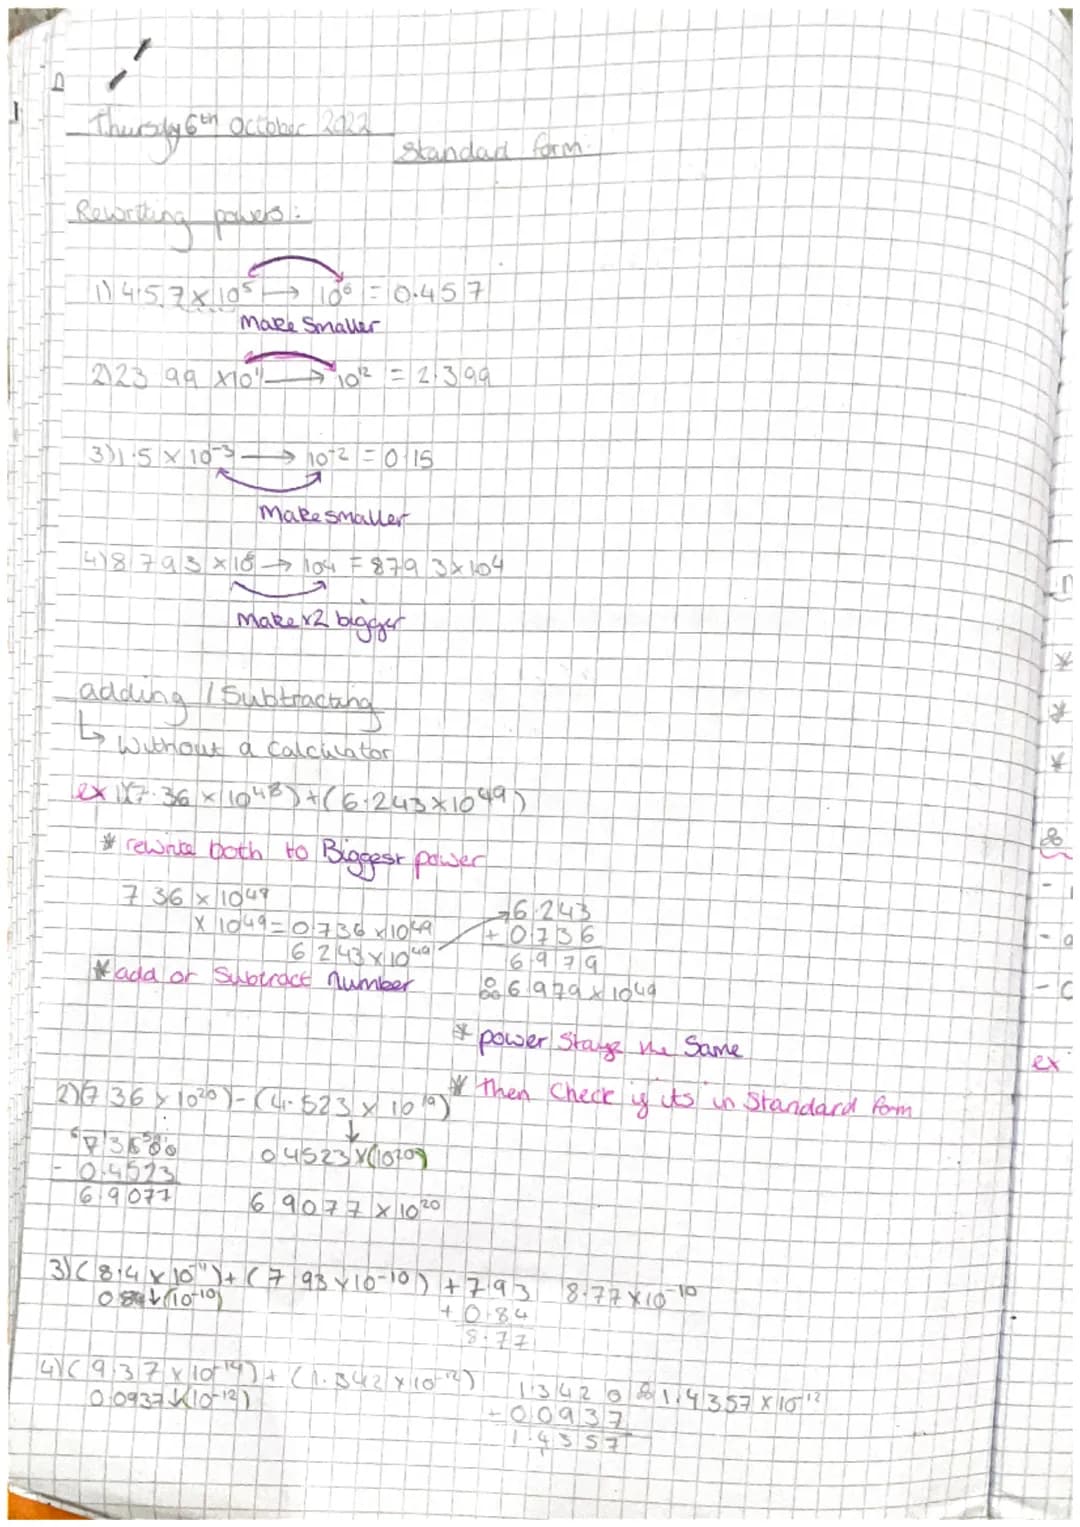 Thursday 6th October 2022
Standard form.
Rewriting powers:
1) 4.57 x 10^5 → 10^6 = 0.457
Make Smaller
2) 23.99 x10^11 → 10^12 = 2.399
3) 1.5 x 10^-3 → 10^-2 = 0.15
Make smaller
4) 8.793 x 10^6 → 10^4 = 879.3x10^4
Make x2 bigger
adding / Subtracting
↳ Without a calculator
ex 1) (7.36 x 10^48) + (6.243 x 10^49)
* rewrite both to Biggest power
7.36 x 10^49
x 10^49 = 0.736 x 10^49
6.243 x 10^49
6.243
+ 0.736
6.979
* add or Subtract number
∴ 6.979 x 10^49
* power Stays the Same
* then Check if its in Standard form
2) (7.36 x 10^20) - (4.523 x 10^19)
7.3600
- 0.4523
6.9077
0.4523 x (10^20)
6.9077 x 10^20
3) (8.4 x 10^-11) + (7.93 x 10^-10) + 7.93 8.77 x 10^-10
0.84 (10^-10)
+ 0.84
8.77
4) (9.37 x 10^-14) + (1.342 x 10^-12) 1.3420 ∴ 1.4357 x 10^-12
0.0937 x (10^-12)
+ 0.0937
1.4357
ex